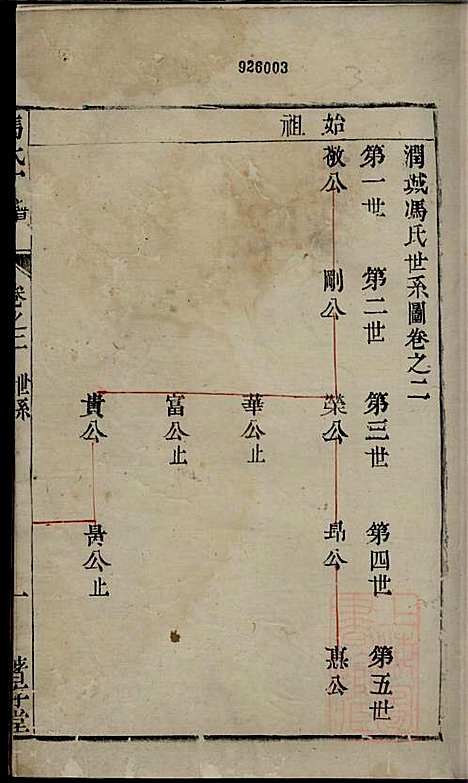 926003
潤城馮氏世系圖卷之二
第一世
第二世
第三世
第四世
第五世
始祖
敬公
剛公
榮公
昂公
惠公
華公止
富公止
貴公
昺公止
馮氏
譜
卷之二
世系
一
堂